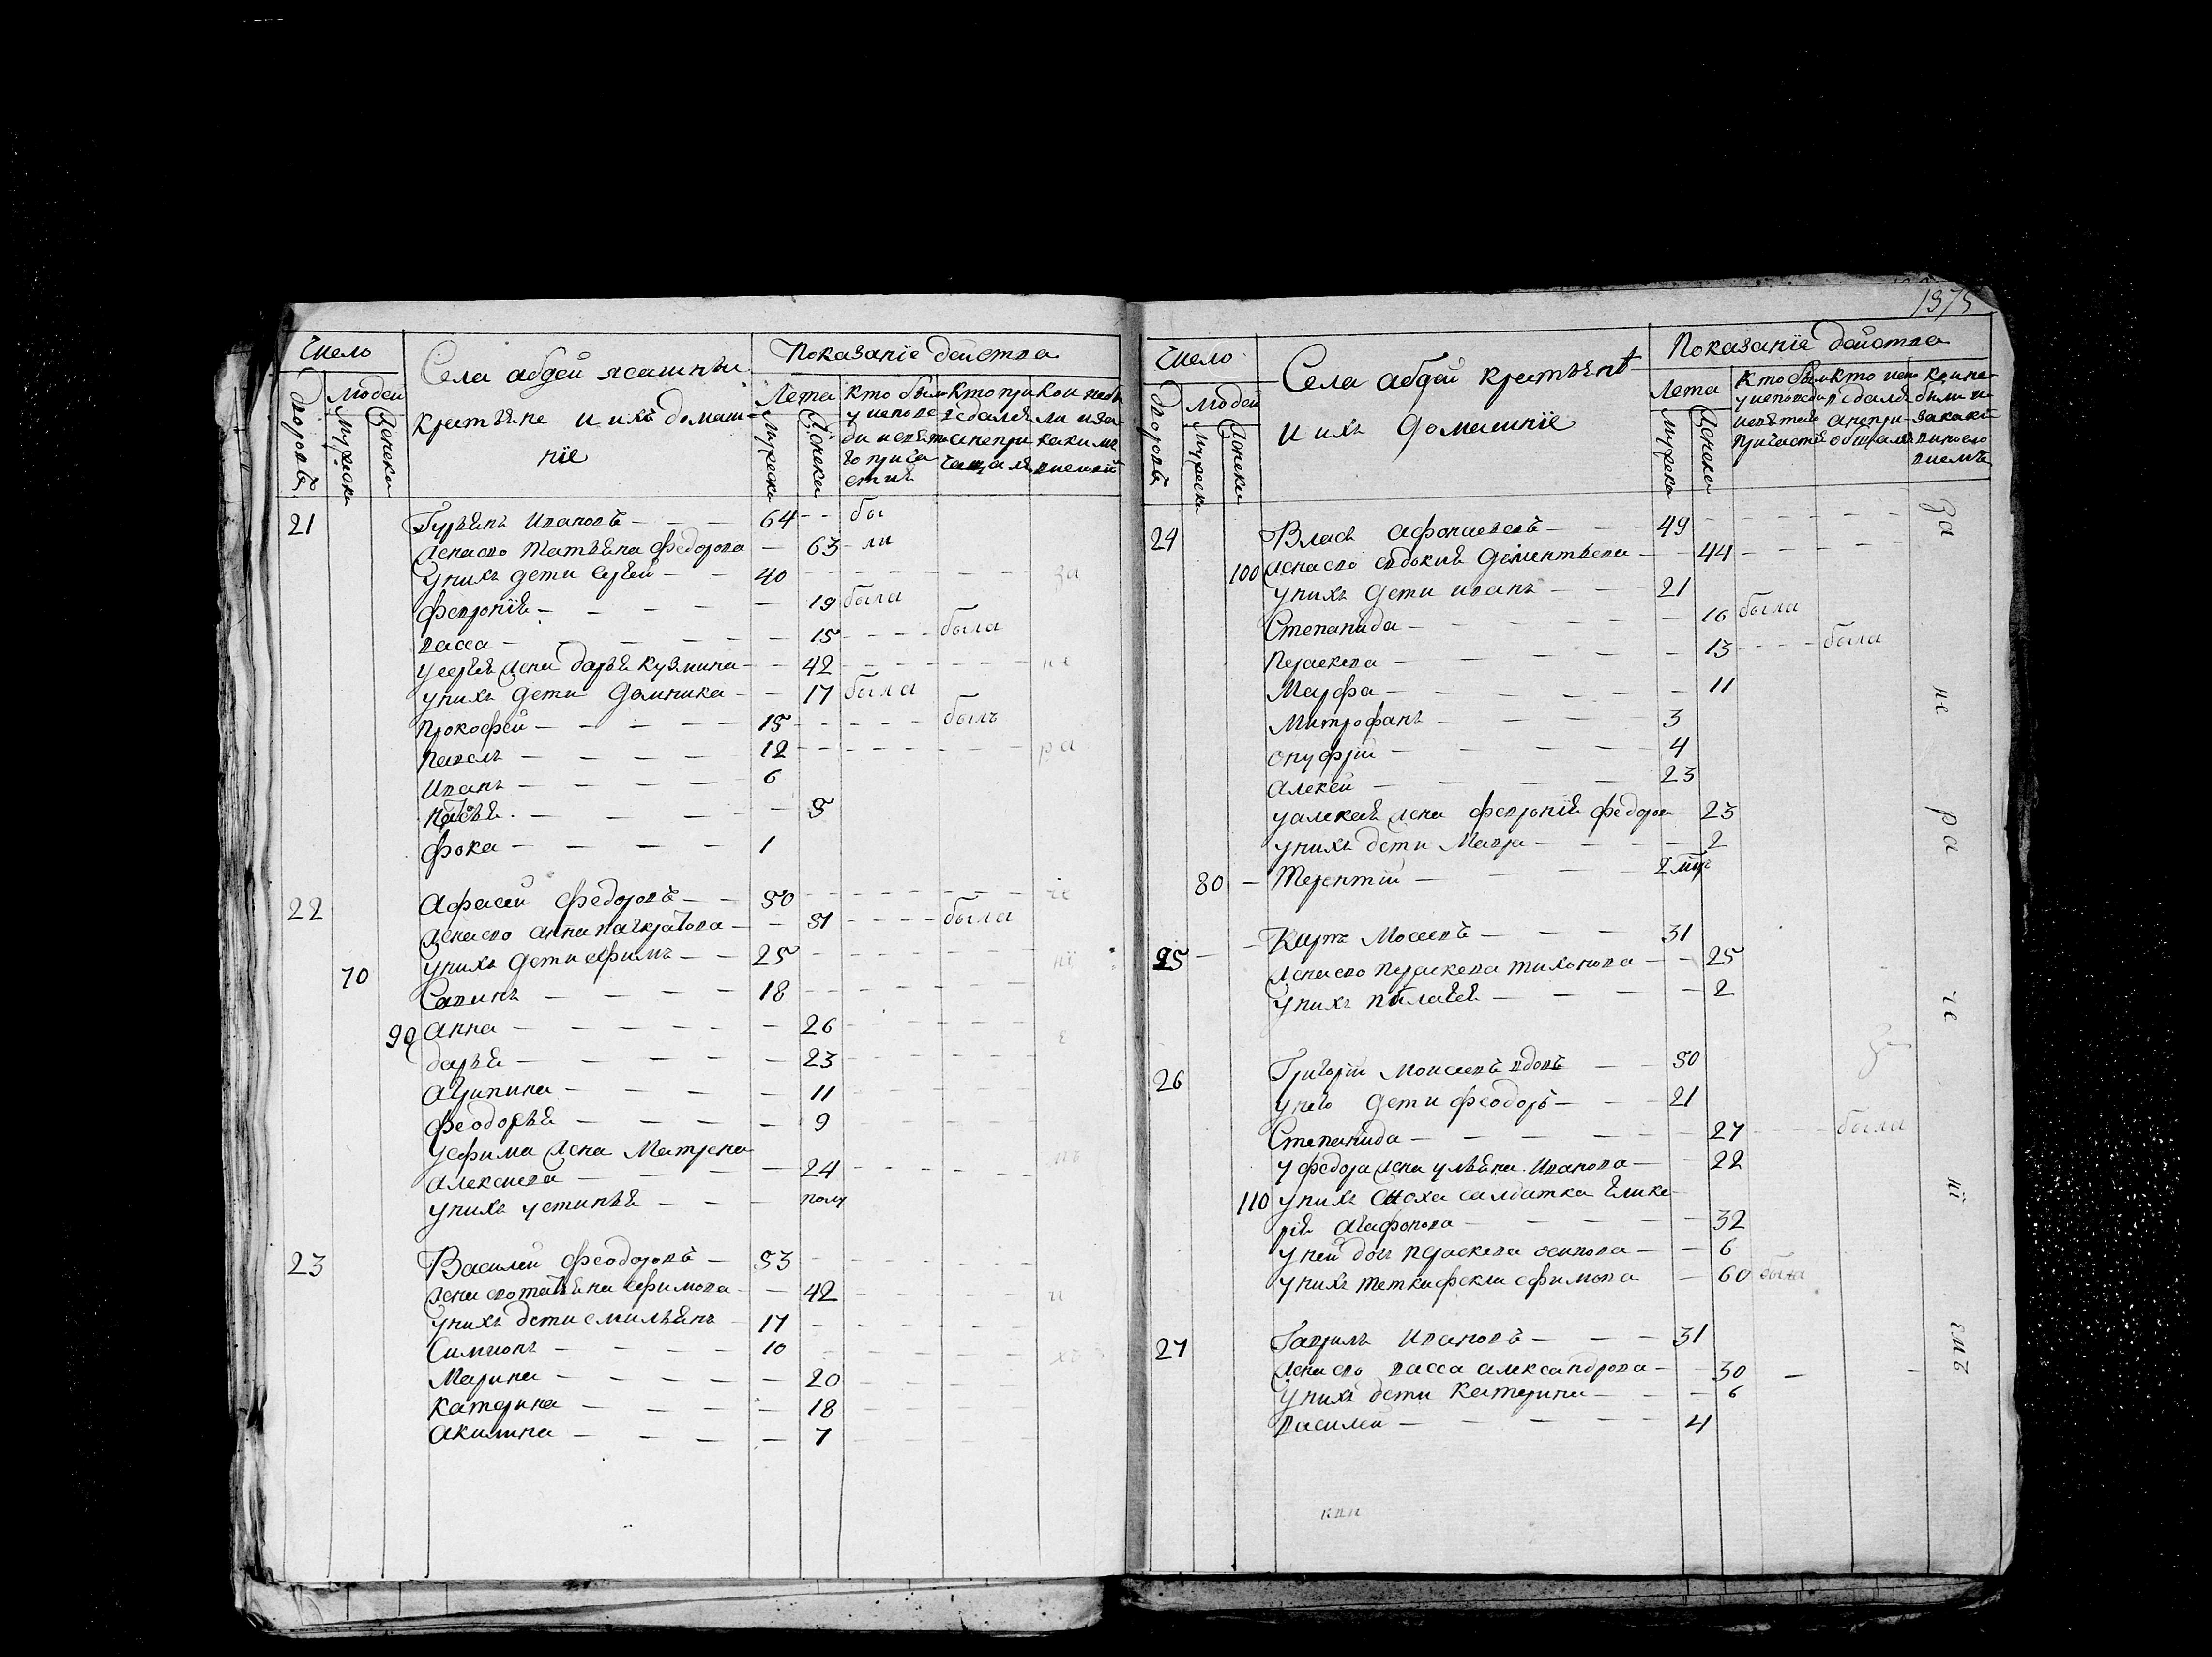 Число
Села абдей ясашныи
крестьяне и ихъ домаш-
ніе
Показаніе действа
дворовъ
людей
мужеска
женска
Лета
мужеска
женска
21 Гурьянъ Ивановъ 64 бы
Жена ево Татьяна Федорова 63 ли
У нихъ дети Сергей 40 за
Феврониѣ 19 была
Васса 15 была
У Сергея жена Дарья Кузмина 42 не
У нихъ дети Домника 17 была
Прокофей 15 былъ
Павелъ 12 ра
Иванъ 6
5
Фока 1
22 Афасей Федоровъ 50 че
Жена ево Анна Панкратова 51 была
У нихъ дети Ефимъ 25 ні
70
Савинъ 18
90 Анна 26 е
Дарья 23
Агрипина 11
Феодосья 9
У Ефима жена Матрена
Алексиева 24
У нихъ Устинья полу
23 Василей Феодоровъ 53
Жена ево Татьяна Ефимова 42 и
У нихъ дети Емильянъ 17
Симионъ 10 хъ
Марина 20
Катерина 18
Акилина 7
1375
Число
Села абдей крестьянѣ
и ихъ домашніе
Показаніе действа
дворовъ
людей
мужеска
женска
Лета
мужеска
женска
24 Власъ Афонасевъ 49 за
100 Жена ево Евдокия Дементьева 44
У нихъ дети Иванъ 21
Степанида 16 была
Праскева 13 была
Марфа 11 не
Митрофанъ 3
Онуфрий 4
Алексей 23
У Алексея жена Феврония Федорова 23 ра
У нихъ дети Мавра 2
80 Терентий 2 мц
25 Карпъ Мосеевъ 31
Жена ево Праскева Тихонова 25
У нихъ Пелагея 2 че
26 Григорий Моисеевъ вдовъ 50
У него дети Феодоръ 21
Степанида 27 была
У Федора жена Ульяна Иванова 22
110 У нихъ сноха салдатка Глике
рия Агафонова 32 ні
У ней дочь Праскева Осипова 6
У нихъ тетка Фекла Ефимова 60 была
27 Гаврилъ Ивановъ 31 емъ
Жена ево Васса Александрова 30
У нихъ дети Катерина 6
Василей 4